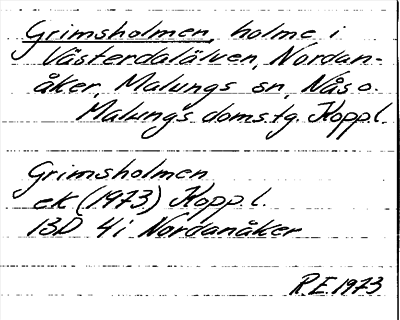 Grimsholmen, holme i
Västerdalälven, Nordan-
åker, Malungs sn, Nås o.
Malungs doms.tg. Kopp.l.
Grimsholmen
ek (1973) Kopp.l.
13D 4i Nordanåker
R.E. 1973